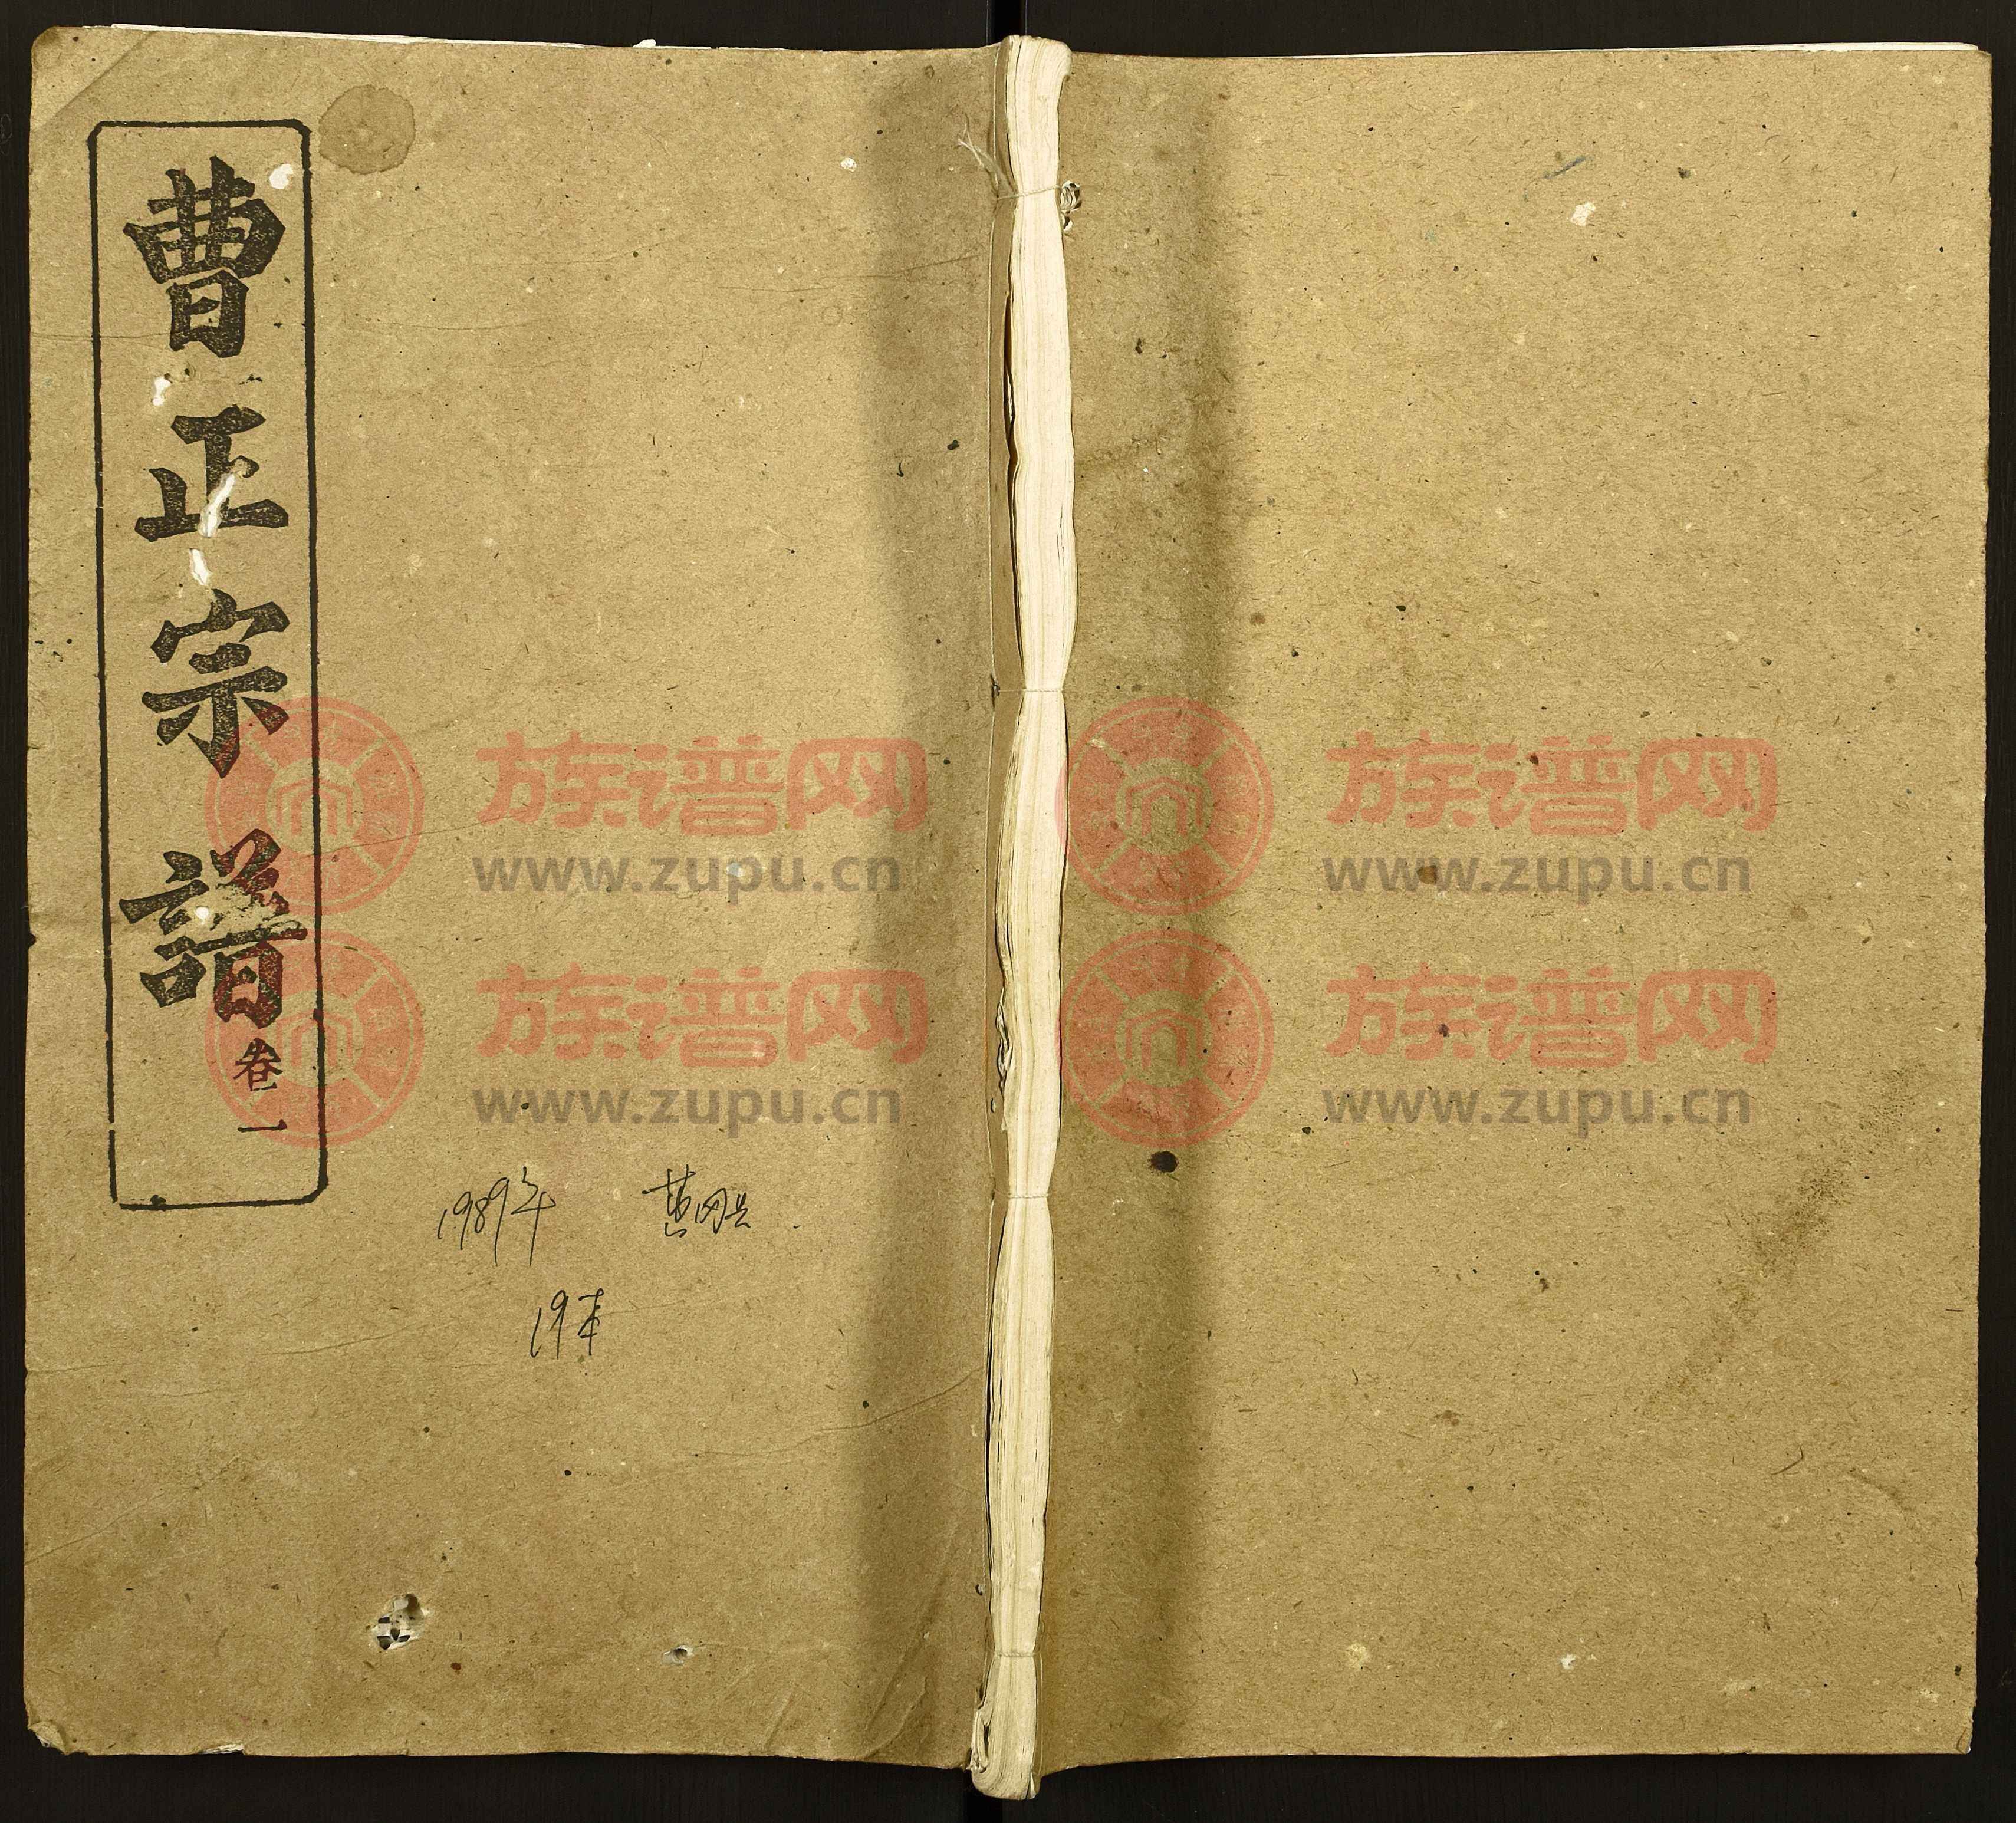 曹正宗譜
卷一
1989年 黄冈县
19本
族谱网 族谱网
www.zupu.cn www.zupu.cn
族谱网 族谱网
www.zupu.cn www.zupu.cn